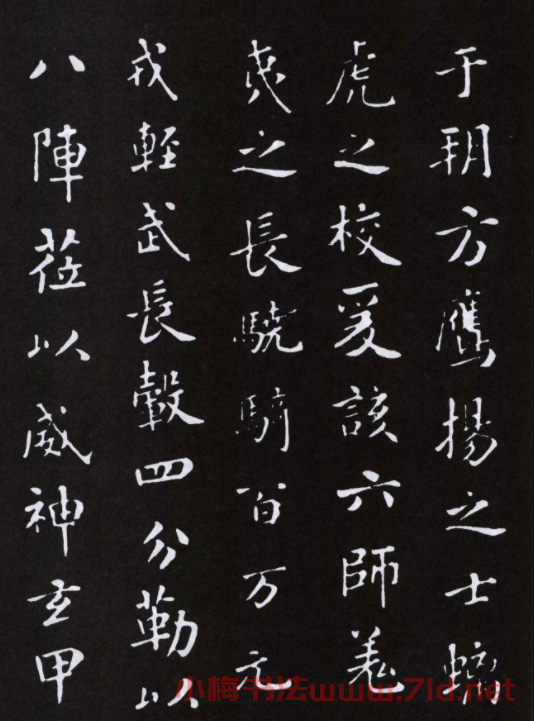 于朔方鷹揚之士螭
虎之校爰該六師羌
夷之長驍騎百万元
戎輕武長轂四分勒以
八陣莅以威神玄甲
小梅书法www.7ld.net